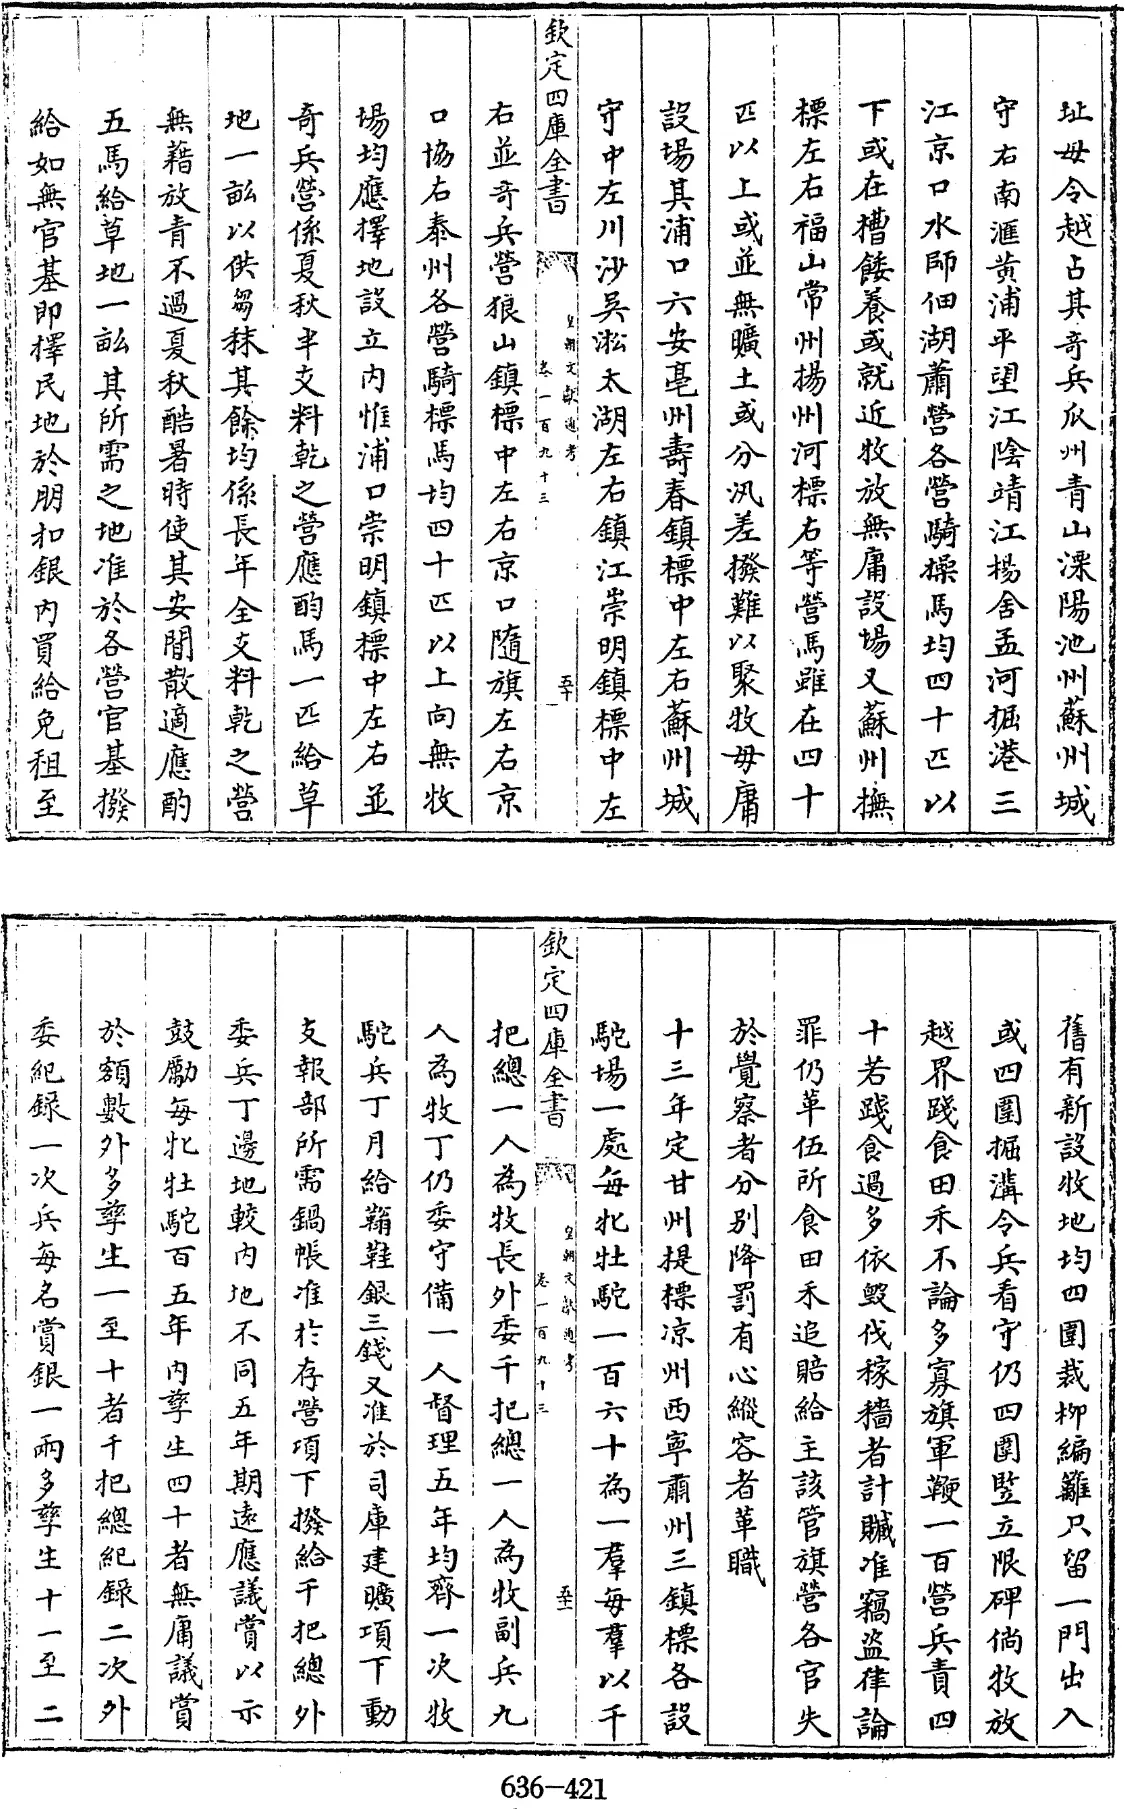 址毋令越占其奇兵瓜州青山溧陽池州蘇州城
守右南滙黄浦平望江陰靖江楊舍孟河掘港三
江京口水師佃湖蕭營各營騎操馬均四十匹以
下或在槽餧養或就近牧放無庸設場又蘇州撫
標左右福山常州揚州河標右等營馬雖在四十
匹以上或並無曠土或分汛差撥難以聚牧毋庸
設場其浦口六安亳州壽春鎮標中左右蘇州城
守中左川沙吳淞太湖左右鎮江崇明鎮標中左
欽定四庫全書
皇朝文獻通考
卷一百九十三
五十
右並奇兵營狼山鎮標中左右京口隨旗左右京
口協右泰州各營騎標馬均四十匹以上向無牧
場均應擇地設立内惟浦口崇明鎮標中左右並
奇兵營係夏秋半支料乾之營應酌馬一匹給草
地一畝以供芻秣其餘均係長年全支料乾之營
無藉放青不過夏秋酷暑時使其安閒散適應酌
五馬給草地一畝其所需之地准於各營官基撥
給如無官基即擇民地於朋扣銀内買給免租至
舊有新設牧地均四圍栽柳編籬只留一門出入
或四圍掘溝令兵看守仍四圍豎立限碑倘牧放
越界踐食田禾不論多寡旗軍鞭一百營兵責四
十若踐食過多依毁伐稼穡者計贓准竊盗律論
罪仍革伍所食田禾追賠給主該管旗營各官失
於覺察者分别降罰有心縱容者革職
十三年定甘州提標凉州西寧肅州三鎮標各設
駝場一處每牝牡駝一百六十為一羣每羣以千
欽定四庫全書
皇朝文獻通考
卷一百九十三
五十一
把總一人為牧長外委千把總一人為牧副兵九
人為牧丁仍委守備一人督理五年均齊一次牧
駝兵丁月給鞴鞋銀三錢又准於司庫建曠項下動
支報部所需鍋帳准於存營項下撥給千把總外
委兵丁邊地較内地不同五年期遠應議賞以示
鼓勵每牝牡駝百五年内孳生四十者無庸議賞
於額數外多孳生一至十者千把總紀録二次外
委紀録一次兵每名賞銀一兩多孳生十一至二
636-421